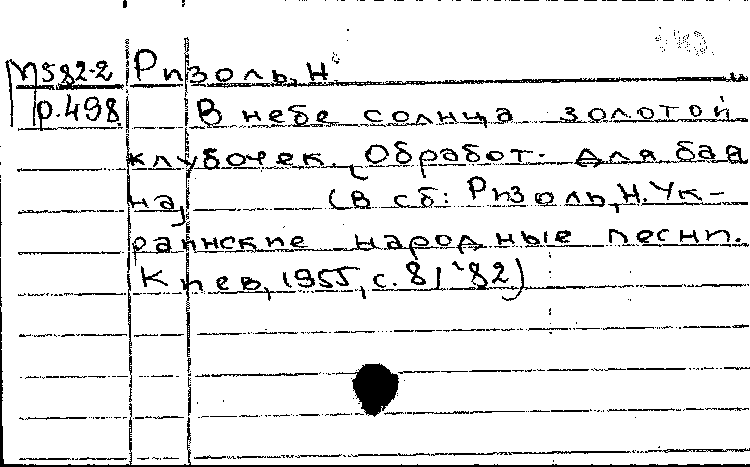 М582-2 Ризоль, Н.
р.498 В небе солнца золотой
клубочек. (Обработ. для бая
на) (В сб: Ризоль, Н. Ук-
раинские народные песни.
Киев, 1955, с. 81-82)